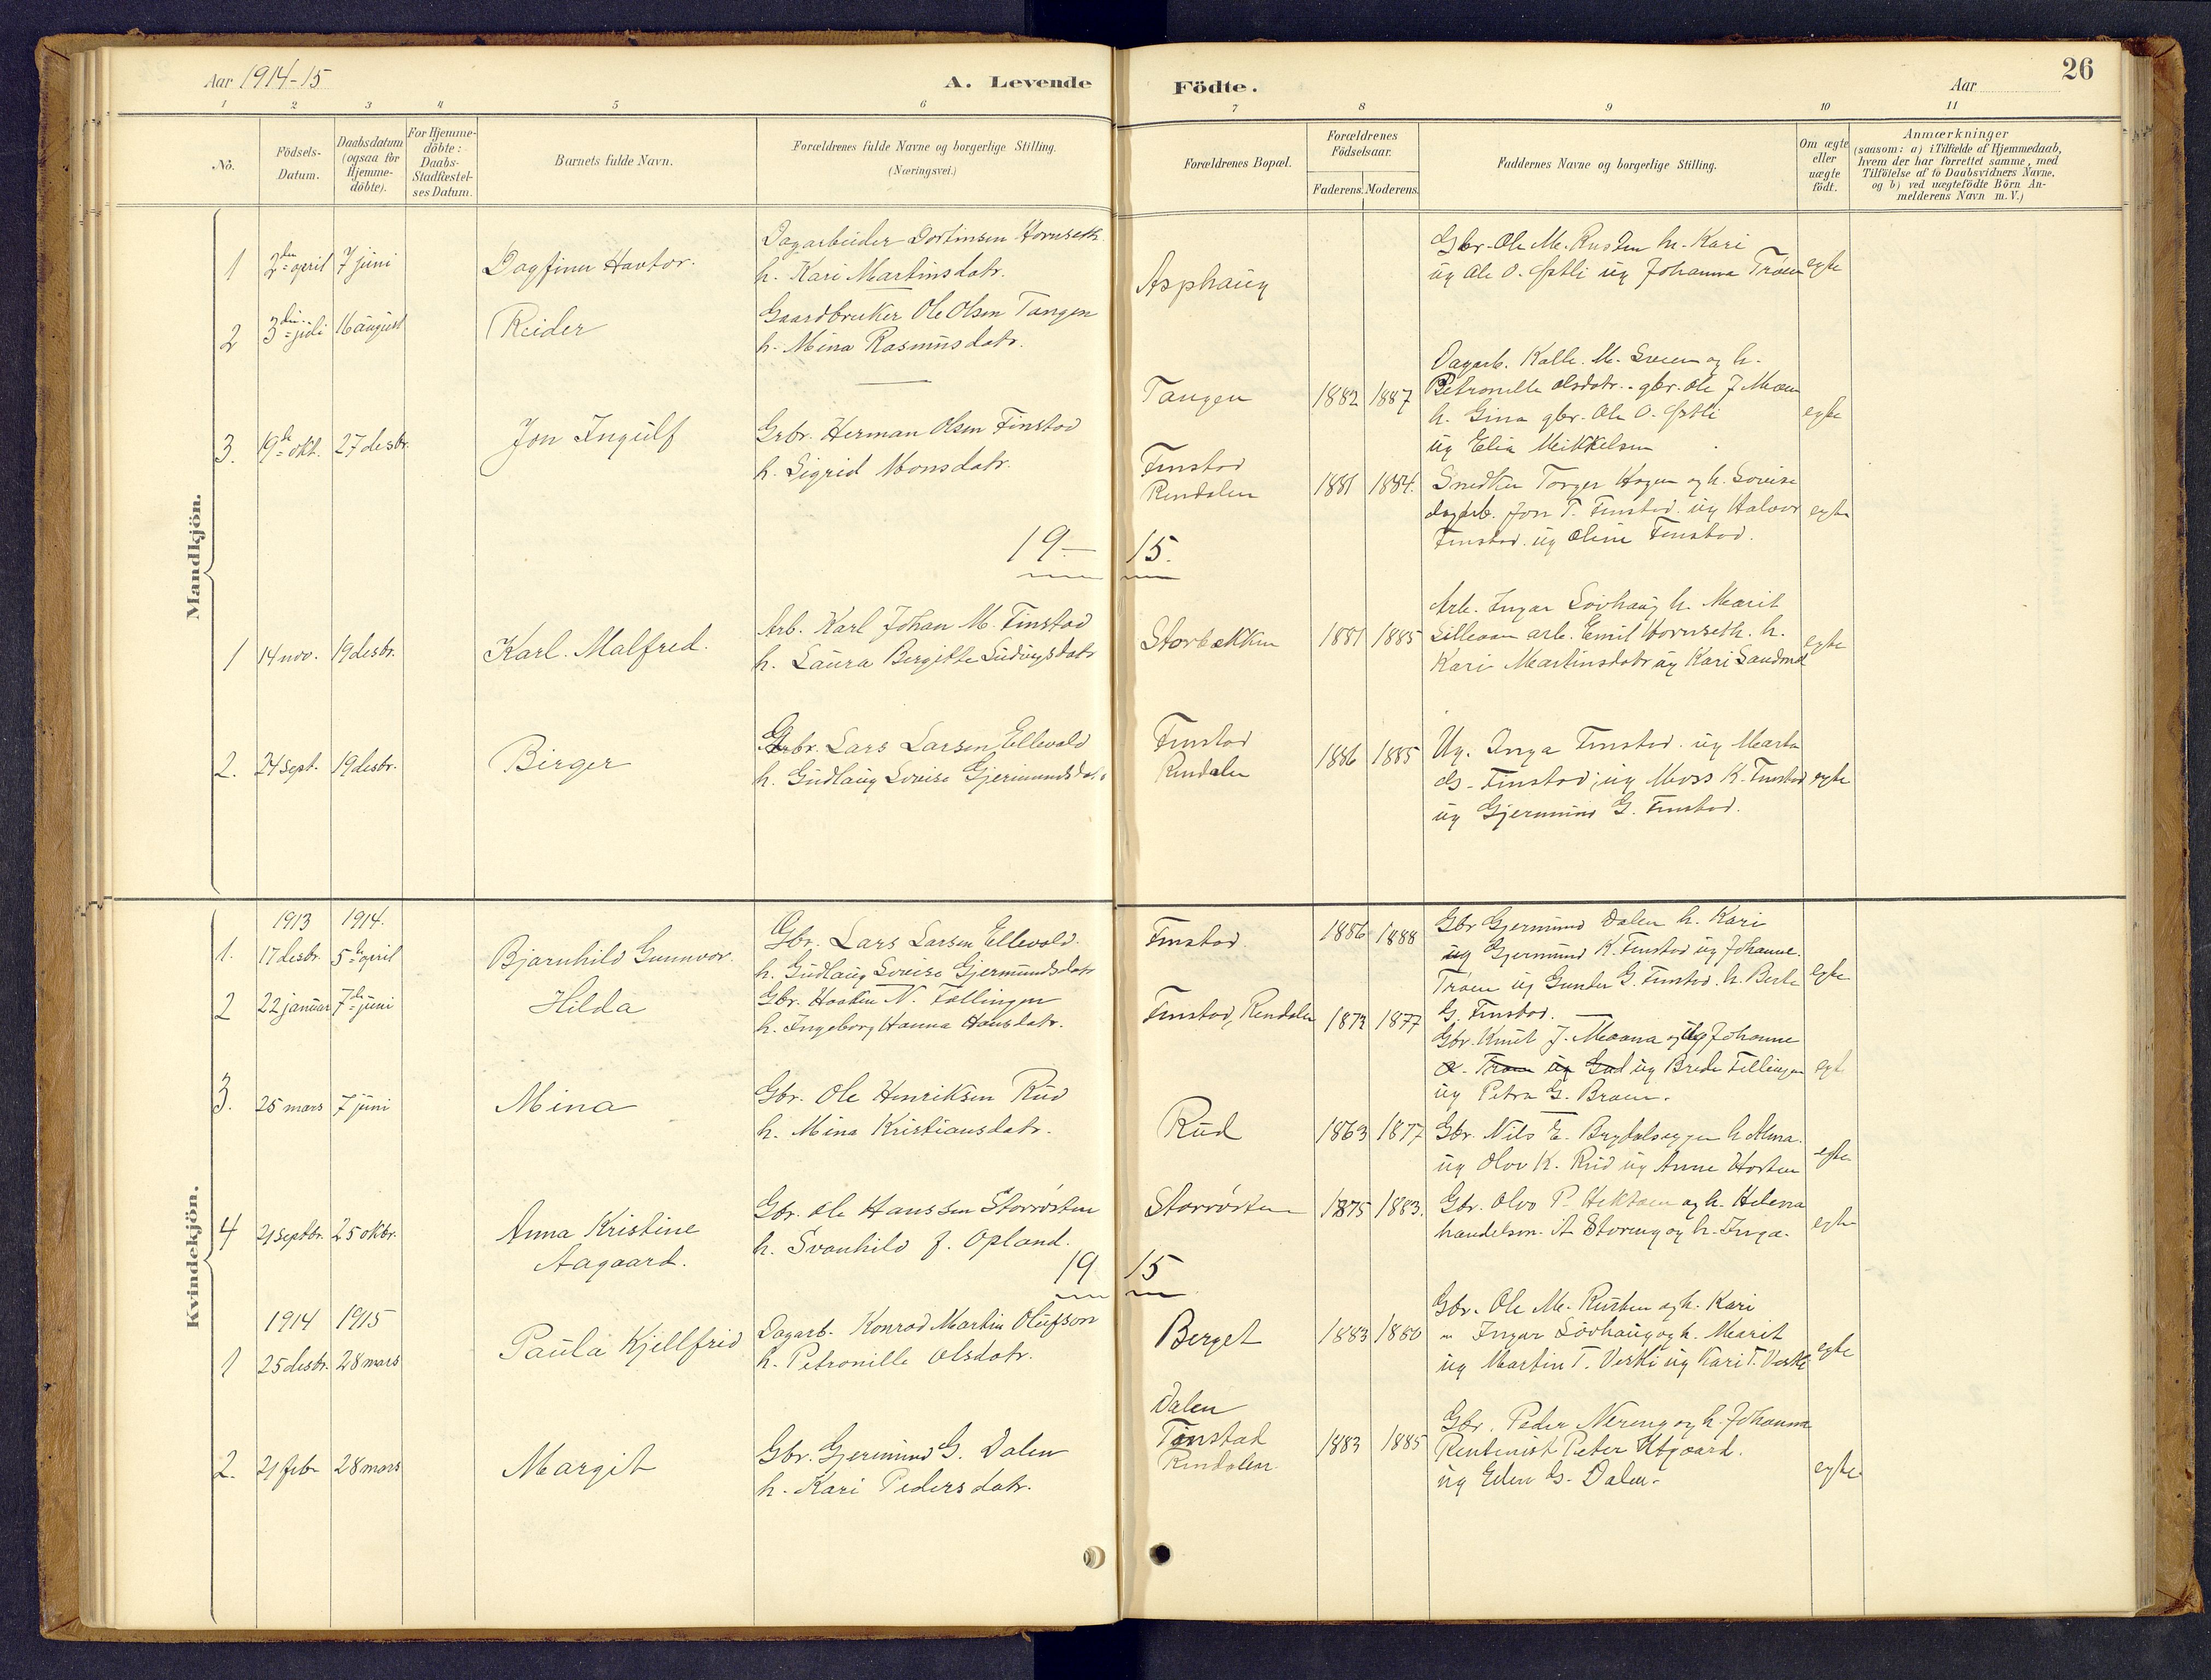 Aar 1914-15
A. Levende
Födte.
Aar
26
1 2 3 4 5 6 7 8 9 10 11
No.
Födsels-
Datum.
Daabsdatum
(ogsaa for
Hjemme-
döbte).
For Hjemme-
döbte:
Daabs-
Stadfæstel-
ses Datum.
Barnets fulde Navn.
Forældrenes fulde Navne og borgerlige Stilling.
(Næringsvei.)
Forældrenes Bopæl.
Forældrenes
Födselsaar.
Faderens. Moderens.
Faddernes Navne og borgerlige Stilling.
Om ægte
eller
uægte
födt.
Anmærkninger
(saasom: a) i Tilfælde af Hjemmedaab,
hvem der har forrettet samme, med
Tilföielse af to Daabsvidners Navne,
og b) ved uægtefödte Börn An-
melderens Navn m. V.)
Mandkjön.
1 2den april 7 juni Dagfinn Havtor.
Dagarbeider Dortinsen Hornseth
h. Kari Martinsdatr.
Asphaug
Gbr. Ole M. Rusten h. Kari
ug Ole O. Østli ug Johanna Trøen
egte
2 3die juli 16 august Reider
Gaardbruker Ole Olsen Tangen
h. Mina Rasmusdatr.
Tangen 1882 1887
Dagarb. Kalle M. Sveen og h.
Petronille Olsdatr. gbr. Ole J Moen
h. Gina gbr. Ole O. Østli
ug Elia Mikkelsen
egte
3. 19de okt. 27 desbr. Jon Ingulf
Grbr. Herman Olsen Finstad
h. Sigrid Monsdatr.
Finstad
Rendalen 1881 1884.
Snedker Torger Hagen og h. Lovise
dagarb. Jon T. Finstad ug Halvor
Finstad. ug Oline Finstad.
egte
19-15.
1 14 nov. 19 desbr. Karl. Malfred.
Arb. Karl Johan M. Finstad
h. Laura Bergitte Ludvigsdatr
Storbekken 1881 1885
Arb. Ingar Lövhaug h. Marit
Lillevan arb. Emil Hornseth. h.
Kari Martinsdatr ug Kari Sandmel
egte
2. 24 sept. 19 desbr. Birger
Gbr. Lars Larsen Ellevold
h. Gudlaug Lovise Gjermundsdatr
Finstad
Rendalen 1886 1885
Ug. Inga Finstad. ug Marta
G. Finstad, ug Moss K. Finstad
ug Gjermund G. Finstad.
egte
Kvindekjön.
1913 1914.
1. 17 desbr. 5te april Bjarnhild Gunnvor.
Gbr. Lars Larsen Ellevold.
h. Gudlaug Lovise Gjermundsdatr
Finstad 1886 1888
Gbr Gjermund Dalen h. Kari
ug Gjermund K. Finstad ug Johanne
Trøen ug Gunder G. Finstad h. Berte
G. Finstad.
egte
2 22 januar 7de juni Hilda
Gbr. Haaken N. Fallingen
h. Ingeborg Hanna Hansdatr.
Finstad, Rendalen 1872 1877
Gbr. Knut J. Moana og ug Johanne
O. Trøen ug Gud ug Brede Fellingen
ug Petra G. Broen.
egte
3. 25 mars 7 juni Mina
Gbr. Ole Henriksen Rud
h. Mina Kristiansdatr.
Rud 1863 1877
Gbr. Nils E. Brydalseggen h Alma.
ug Olov K. Rud ug Anne Horten
egte
4 21 septbr. 25 oktbr. Anna Kristine
Aagaard.
Gbr. Ole Hanssen Storrøsten
h. Svanhild J. Opland.
Storrøsten 1875 1883.
Gbr. Olvo P. Hektoen og h. Helena
handelsm. A Storeng og h. Inga.
egte
19 15
1914 1915
1 25 desbr. 28 mars Paula Kjellfrid
Dagarb. Konrad Martin Olufson
h. Petronille Olsdatr.
Berget 1883 1880
Gbr. Ole M. Rusten og h. Kari
" Ingar Lövhaug og h. Marit
ug Martin T. Veski ug Kari T. Veski
egte
2. 21 febr 28 mars Margit
Gbr. Gjermund G. Dalen
h. Kari Pedersdatr.
Dalen
Finstad
Rendalen 1883 1885
Gbr. Peder Nereng og h. Johanna
Rentenist Peter Utgaard.
ug Eden G. Dalen.
egte